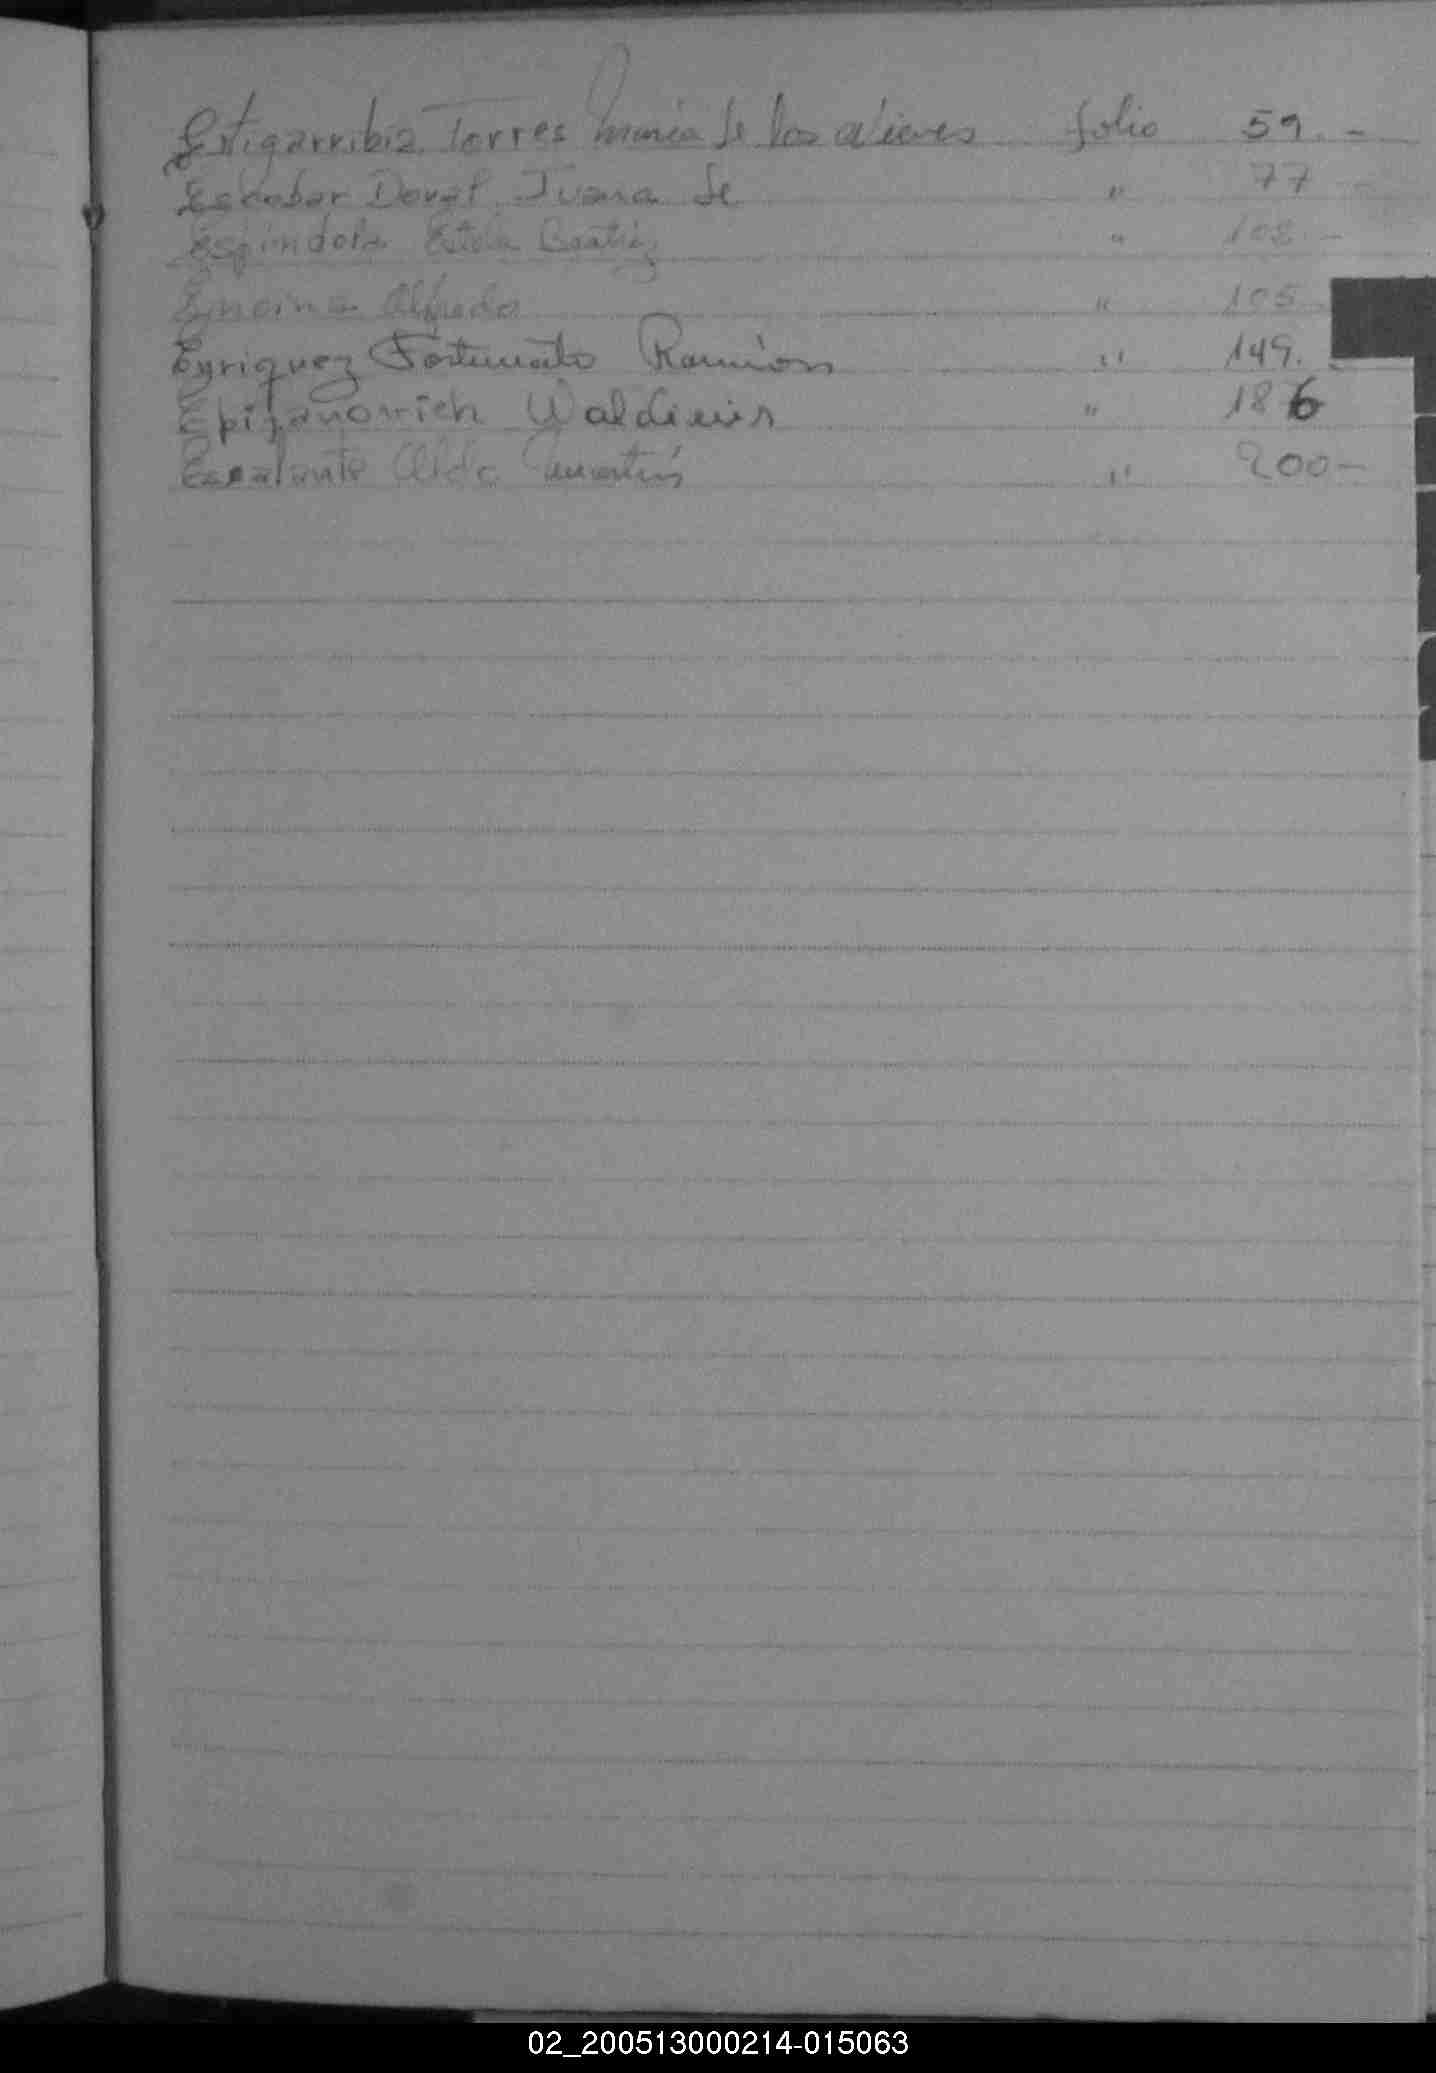 Estigarribia Torres Maria de las Nieves folio 59.-
Escobar Juana de " 77
Espindola Estela Beatriz " 102.-
Encina Alfredo " 105
Enriquez Fortunato Ramón " 149.
Epifanovich " 186
Escalante Aldo Martín " 200-
02_200513000214-015063